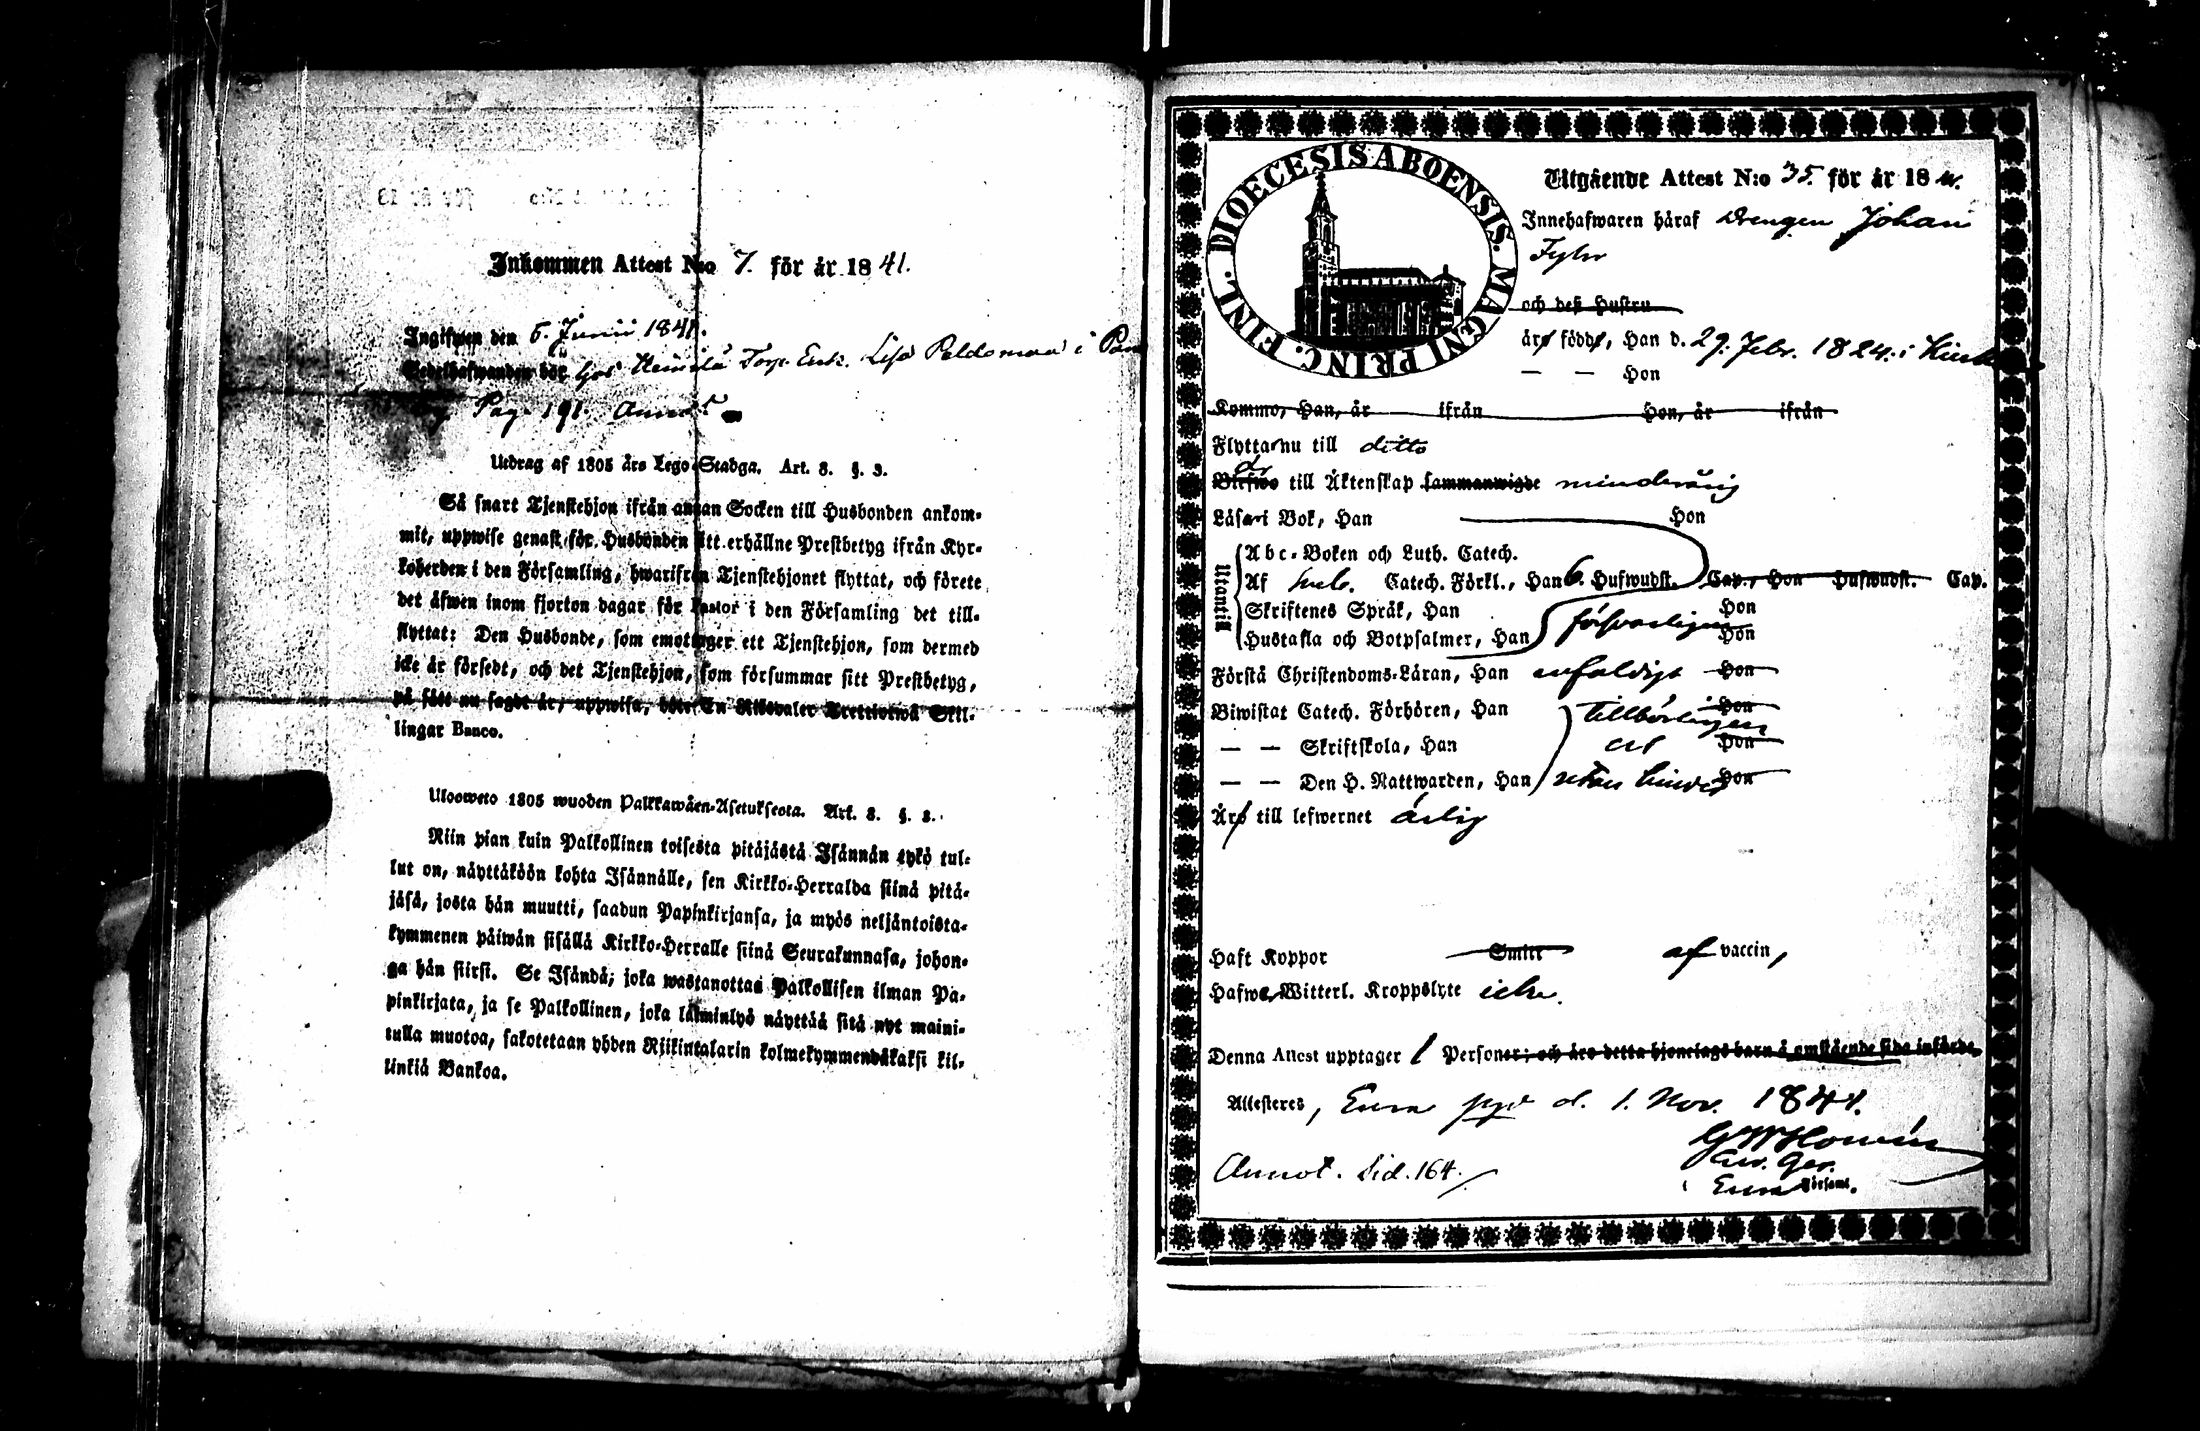 Inkommen Attest N:o 7. för år 1841.
Ingifwen den 6. Junii 1841.
Sedelhafwanden bör hos Heinilä Torp. Enk. Lisa Peldomaa i Pan
Pag. 191. Annot.
Utdrag af 1805 års Lego-Stadga. Art. 8. §. 3.
Så snart Tjenstehjon ifrån annan Socken till Husbonden ankom-
mit, uppwise genast för Husbonden sitt erhållne Prestbetyg ifrån Kyr-
koherden i den Församling, hwarifrån Tjenstehjonet flyttat, och förete
det äfwen inom fjorton dagar för Pastor i den Församling det till-
flyttat: Den Husbonde, som emottager ett Tjenstehjon, som dermed
icke är försedt, och det Tjenstehjon, som försummar sitt Prestbetyg,
på sätt nu sagdt är, uppwisa, böte En Riksdaler Trettiotwå Skil-
lingar Banco.
Ulosweto 1805 wuoden Palkkawäen-Asetuksesta. Art. 8. §. 3.
Niin pian kuin Palkollinen toisesta pitäjästä Isännän tykö tul-
lut on, näyttäköön kohta Isännälle, sen Kirkko-Herralda siinä pitä-
jäsä, josta hän muutti, saadun Papinkirjansa, ja myös neljäntoista-
kymmenen päiwän sisällä Kirkko-Herralle siinä Seurakunnasa, johon-
ga hän siirsi. Se Isändä, joka wastanottaa Palkollisen ilman Pa-
pinkirjata, ja se Palkollinen, joka laiminlyö näyttää sitä nyt maini-
tulla muotoa, sakotetaan yhden Riikintalarin kolmekymmendäkaksi kil-
linkiä Bankoa.
FINL. DIOECESIS ABOENSIS. MAGNI PRINC.
Utgående Attest N:o 35. för år 1841.
Innehafwaren häraf Drengen Johan
och deß Hustru
äro födde, Han d. 29. Febr. 1824. i
— — Hon
Kommo, Han, år ifrån Hon, år ifrån
Flytta nu till ditto
Blefwo är till Äktenskap sammanwigde minderårig
Läsa i Bok, Han Hon
Utantill
Abc-Boken och Luth. Catech.
Af Sveb. Catech. Förkl., Han 6. Hufwudst. Cap., Hon Hufwudst. Cap.
Skriftenes Språk, Han försvarligen Hon
Hustafla och Botpsalmer, Han Hon
Förstå Christendoms-Läran, Han enfaldigt Hon
Biwistat Catech. Förhören, Han tillbörligen Hon
— — Skriftskola, Han och Hon
— — Den H. Nattwarden, Han utan hinder Hon
Äro till lefwernet ärlig
Haft Koppor Smitt af vaccin,
Hafwa Witterl. Kroppslyte icke.
Denna Attest upptager 1 Personer; och äro detta hjonelags barn å omstående sida införde.
Attesteres, Eura d. 1. Nov. 1841.
Annot. Sid. 164.
Eura Församl.